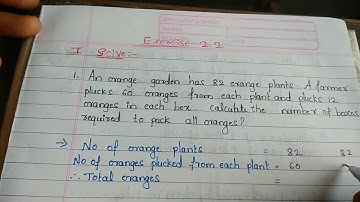 Exercise 2.2
I Solve:-
1. An orange garden has 82 orange plants. A farmer
plucks 60 oranges from each plant and plucks 12
oranges in each box calculate the number of boxes
required to pack all oranges?
→ No of orange plants = 82 82
No of oranges plucked from each plant = 60
∴ Total oranges =